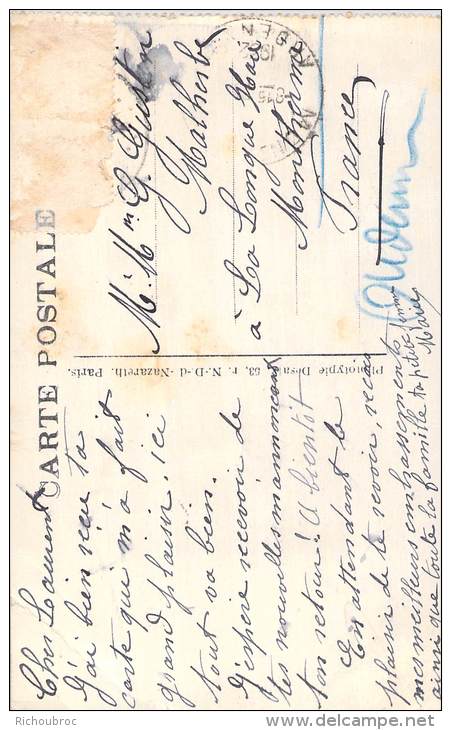 CARTE POSTALE
Cher Laurent
J'ai bien reçu ta
carte qui m'a fait
grand plaisir, ici
tout va bien.
J'espère recevoir de
tes nouvelles m'annoncant
ton retour! A bientôt
En attendant le
plaisir de te revoir, recois
mes meilleurs embrassements
ainsi que toute la famille ta petite femme
Phototypie 53, r. N.-D.-d-Nazareth. Paris.
Mr. Mme G. Gustin
Malherbe
à La Longue Haie
Monthermé
France
ARDEN
© Richoubroc